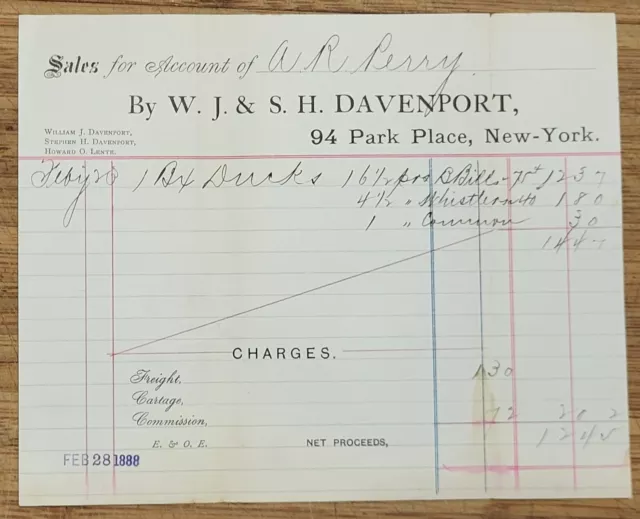 Sales for Account of A R Perry
By W. J. & S. H. DAVENPORT,
WILLIAM J. DAVENPORT,
STEPHEN H. DAVENPORT,
HOWARD O. LENTZ.
94 Park Place, New-York.
Feby 28 1 Bx Ducks 16½ prs B Bills 75¢ 12 37
4½ " Whistlers 40 1 80
1 " Common 30
14 47
CHARGES.
Freight, 1 30
Cartage,
Commission, 72 2 0 2
E. & O. E. NET PROCEEDS, 12 45
FEB 28 1888